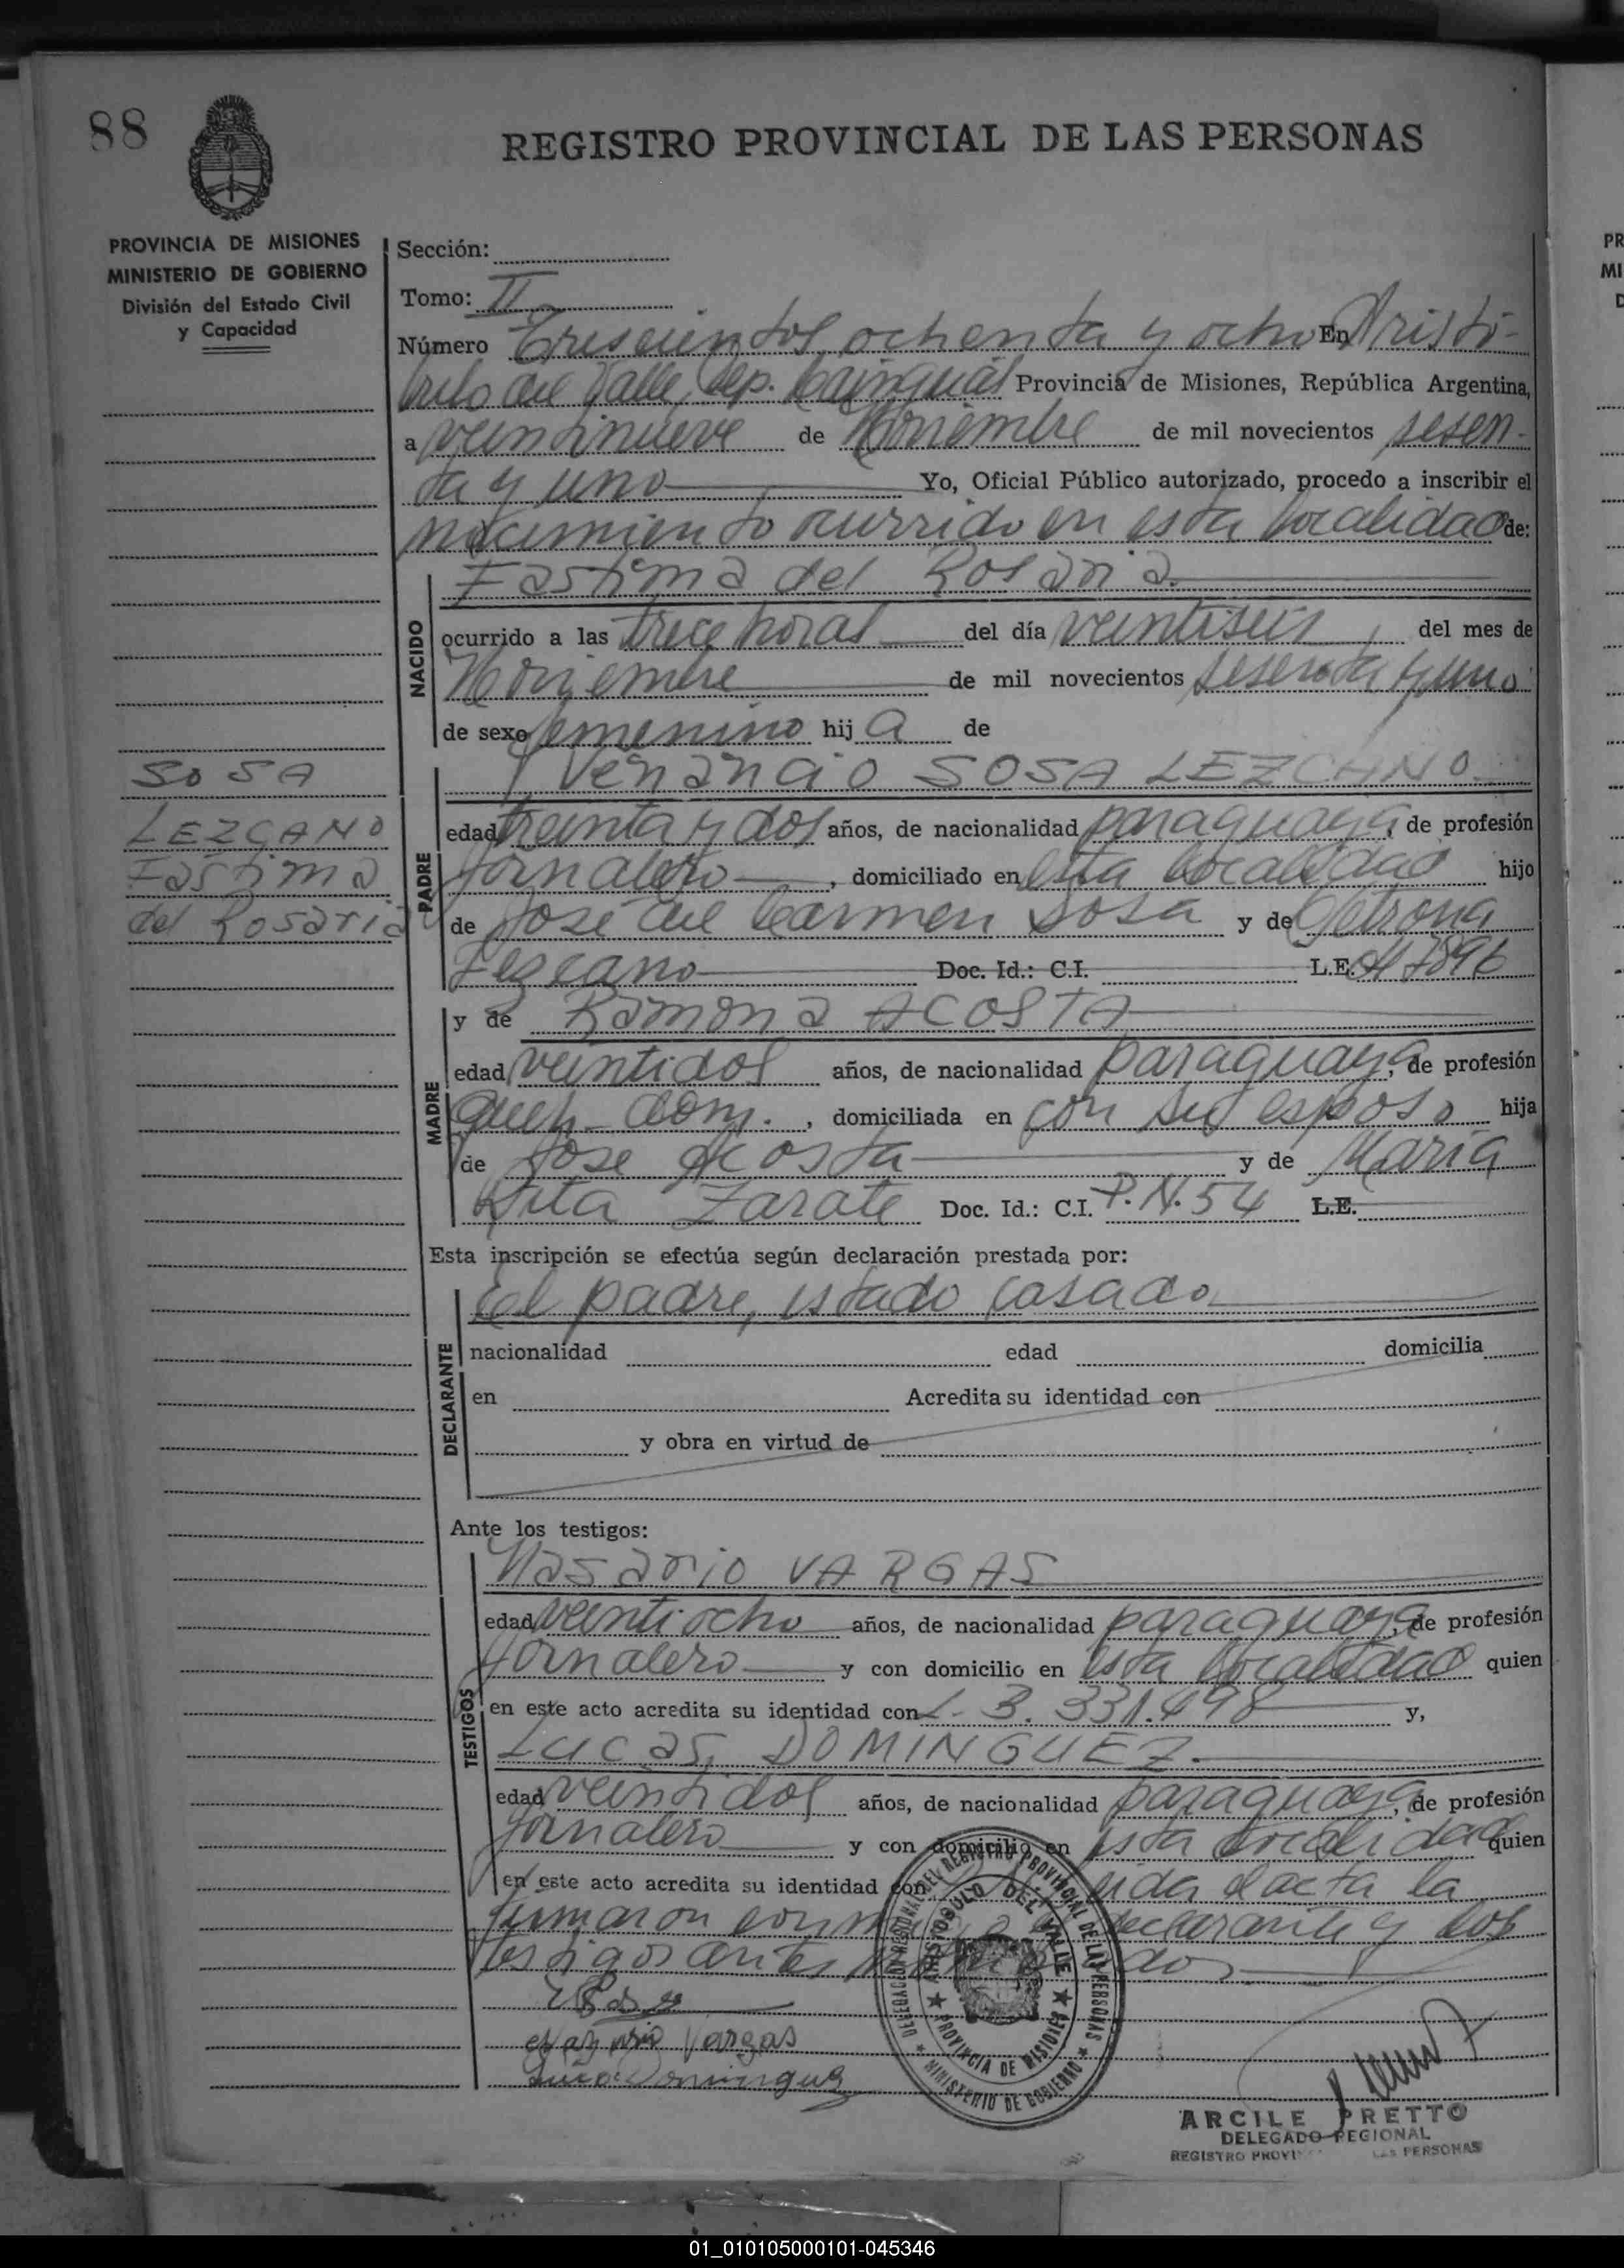 88
REGISTRO PROVINCIAL DE LAS PERSONAS
PROVINCIA DE MISIONES
MINISTERIO DE GOBIERNO
División del Estado Civil
y Capacidad
Sección:
Tomo: II
Número Trescientos ochenta y ocho En Aristó-
bulo del Valle, Dep. Cainguás Provincia de Misiones, República Argentina,
a veintinueve de Noviembre de mil novecientos sesen-
ta y uno Yo, Oficial Público autorizado, procedo a inscribir el
nacimiento ocurrido en esta localidad de:
NACIDO
Fastima del Rosario.
ocurrido a las trece horas del día veintiseis, del mes de
Noviembre de mil novecientos sesenta y uno
de sexo femenino hij a de
SOSA
LEZCANO
Fastima
del Rosario
PADRE
Venancio SOSA LEZCANO
edad treinta y dos años, de nacionalidad paraguaya, de profesión
jornalero, domiciliado en esta localidad hijo
de José del Carmen Sosa y de Petrona
Lezcano Doc. Id.: C.I. L.E. 7896
MADRE
y de Ramona ACOSTA
edad veintidos años, de nacionalidad paraguaya, de profesión
queh. dom., domiciliada en con su esposo hija
de José Acosta y de María
Rita Zarate Doc. Id.: C.I. P.N. 54 L.E.
Esta inscripción se efectúa según declaración prestada por:
DECLARANTE
El padre, estado casado
nacionalidad edad domicilia
en Acredita su identidad con
y obra en virtud de
Ante los testigos:
TESTIGOS
Nasario VARGAS
edad veintiocho años, de nacionalidad paraguaya, de profesión
jornalero y con domicilio en esta localidad quien
en este acto acredita su identidad con L- 3.331.498 y,
Lucas DOMINGUEZ.
edad veintidos años, de nacionalidad paraguaya, de profesión
jornalero y con domicilio en esta localidad quien
en este acto acredita su identidad con acta la
firmaron declarante y los
testigos antes
Nazario Vargas
Lucas Dominguez
DELEGACION REGIONAL DEL REGISTRO PROVINCIAL DE LAS PERSONAS
ARISTOBULO DEL VALLE
PROVINCIA DE MISIONES
MINISTERIO DE GOBIERNO
ARCILE PRETTO
DELEGADO REGIONAL
REGISTRO LAS PERSONAS
01_010105000101-045346